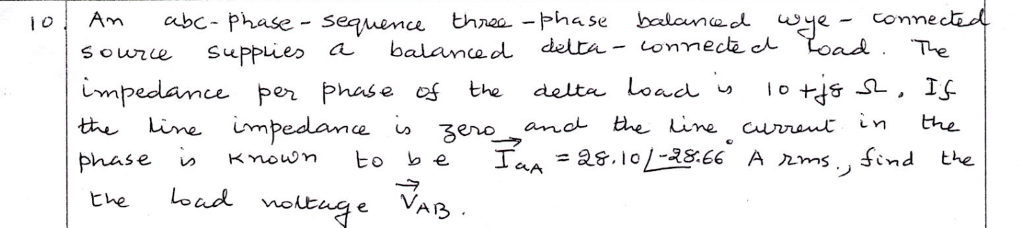 10. An abc-phase-sequence three-phase balanced wye-connected
source supplies a balanced delta-connected load. The
impedance per phase of the delta load is 10+j8 Ω, If
the line impedance is zero and the line current in the
phase is known to be I⃗aA = 28.10∠-28.66° A rms., find the
the load voltage V⃗AB.